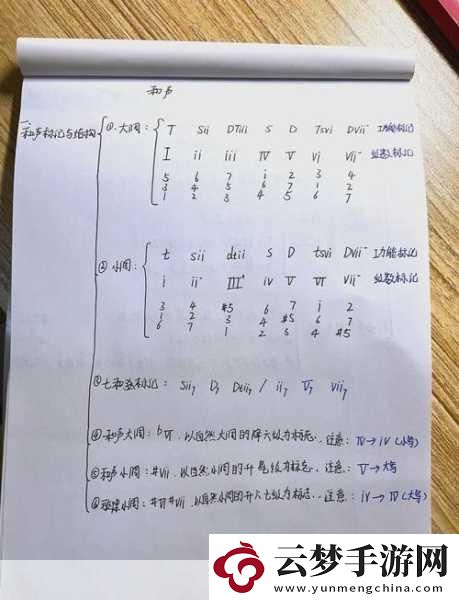 和声
一.和声标记与结构
① 大调: T Sii DTiii S D Tsvi Dvii° 功能标记
I ii iii IV V vi vii° 级数标记
5 6 7 i 2 3 4
3 4 5 6 7 1 2
1 2 3 4 5 6 7
② 小调: t sii dtiii S D tsvi Dvii° 功能标记
i ii° III⁺ iv V VI vii° 级数标记
3 4 #5 6 7 i 2
1 2 3 4 #5 6 7
6 7 1 2 3 4 #5
③ 七和弦标记: Sii7 D7 Dtii7 / ii7 V7 vii7
④ 和声大调: bVI. 以自然大调的降六级为标志. 注意: IV→iV (小写)
⑤ 和声小调: #vii. 以自然小调的升七级为标志. 注意: V→大写
⑥ 旋律小调: #VI #vii. 以自然小调的升六七级为标志. 注意: iV→IV (大写)
云梦手游网
www.yunmengchina.com